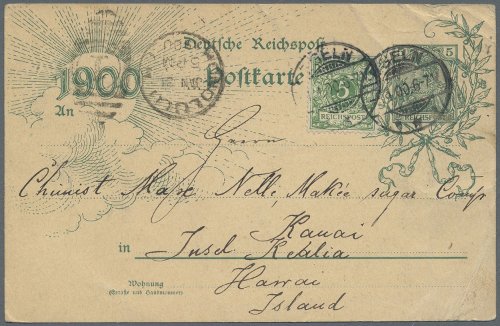 Deutsche Reichspost
1900 Postkarte
HONOLULU
5
REICHSPOST
5
An
Herrn
Chemist Max Nelle, Makee sugar Comp
Kauai
in Insel Kehlia
Hawai
Island
Wohnung
(Straße und Hausnummer)